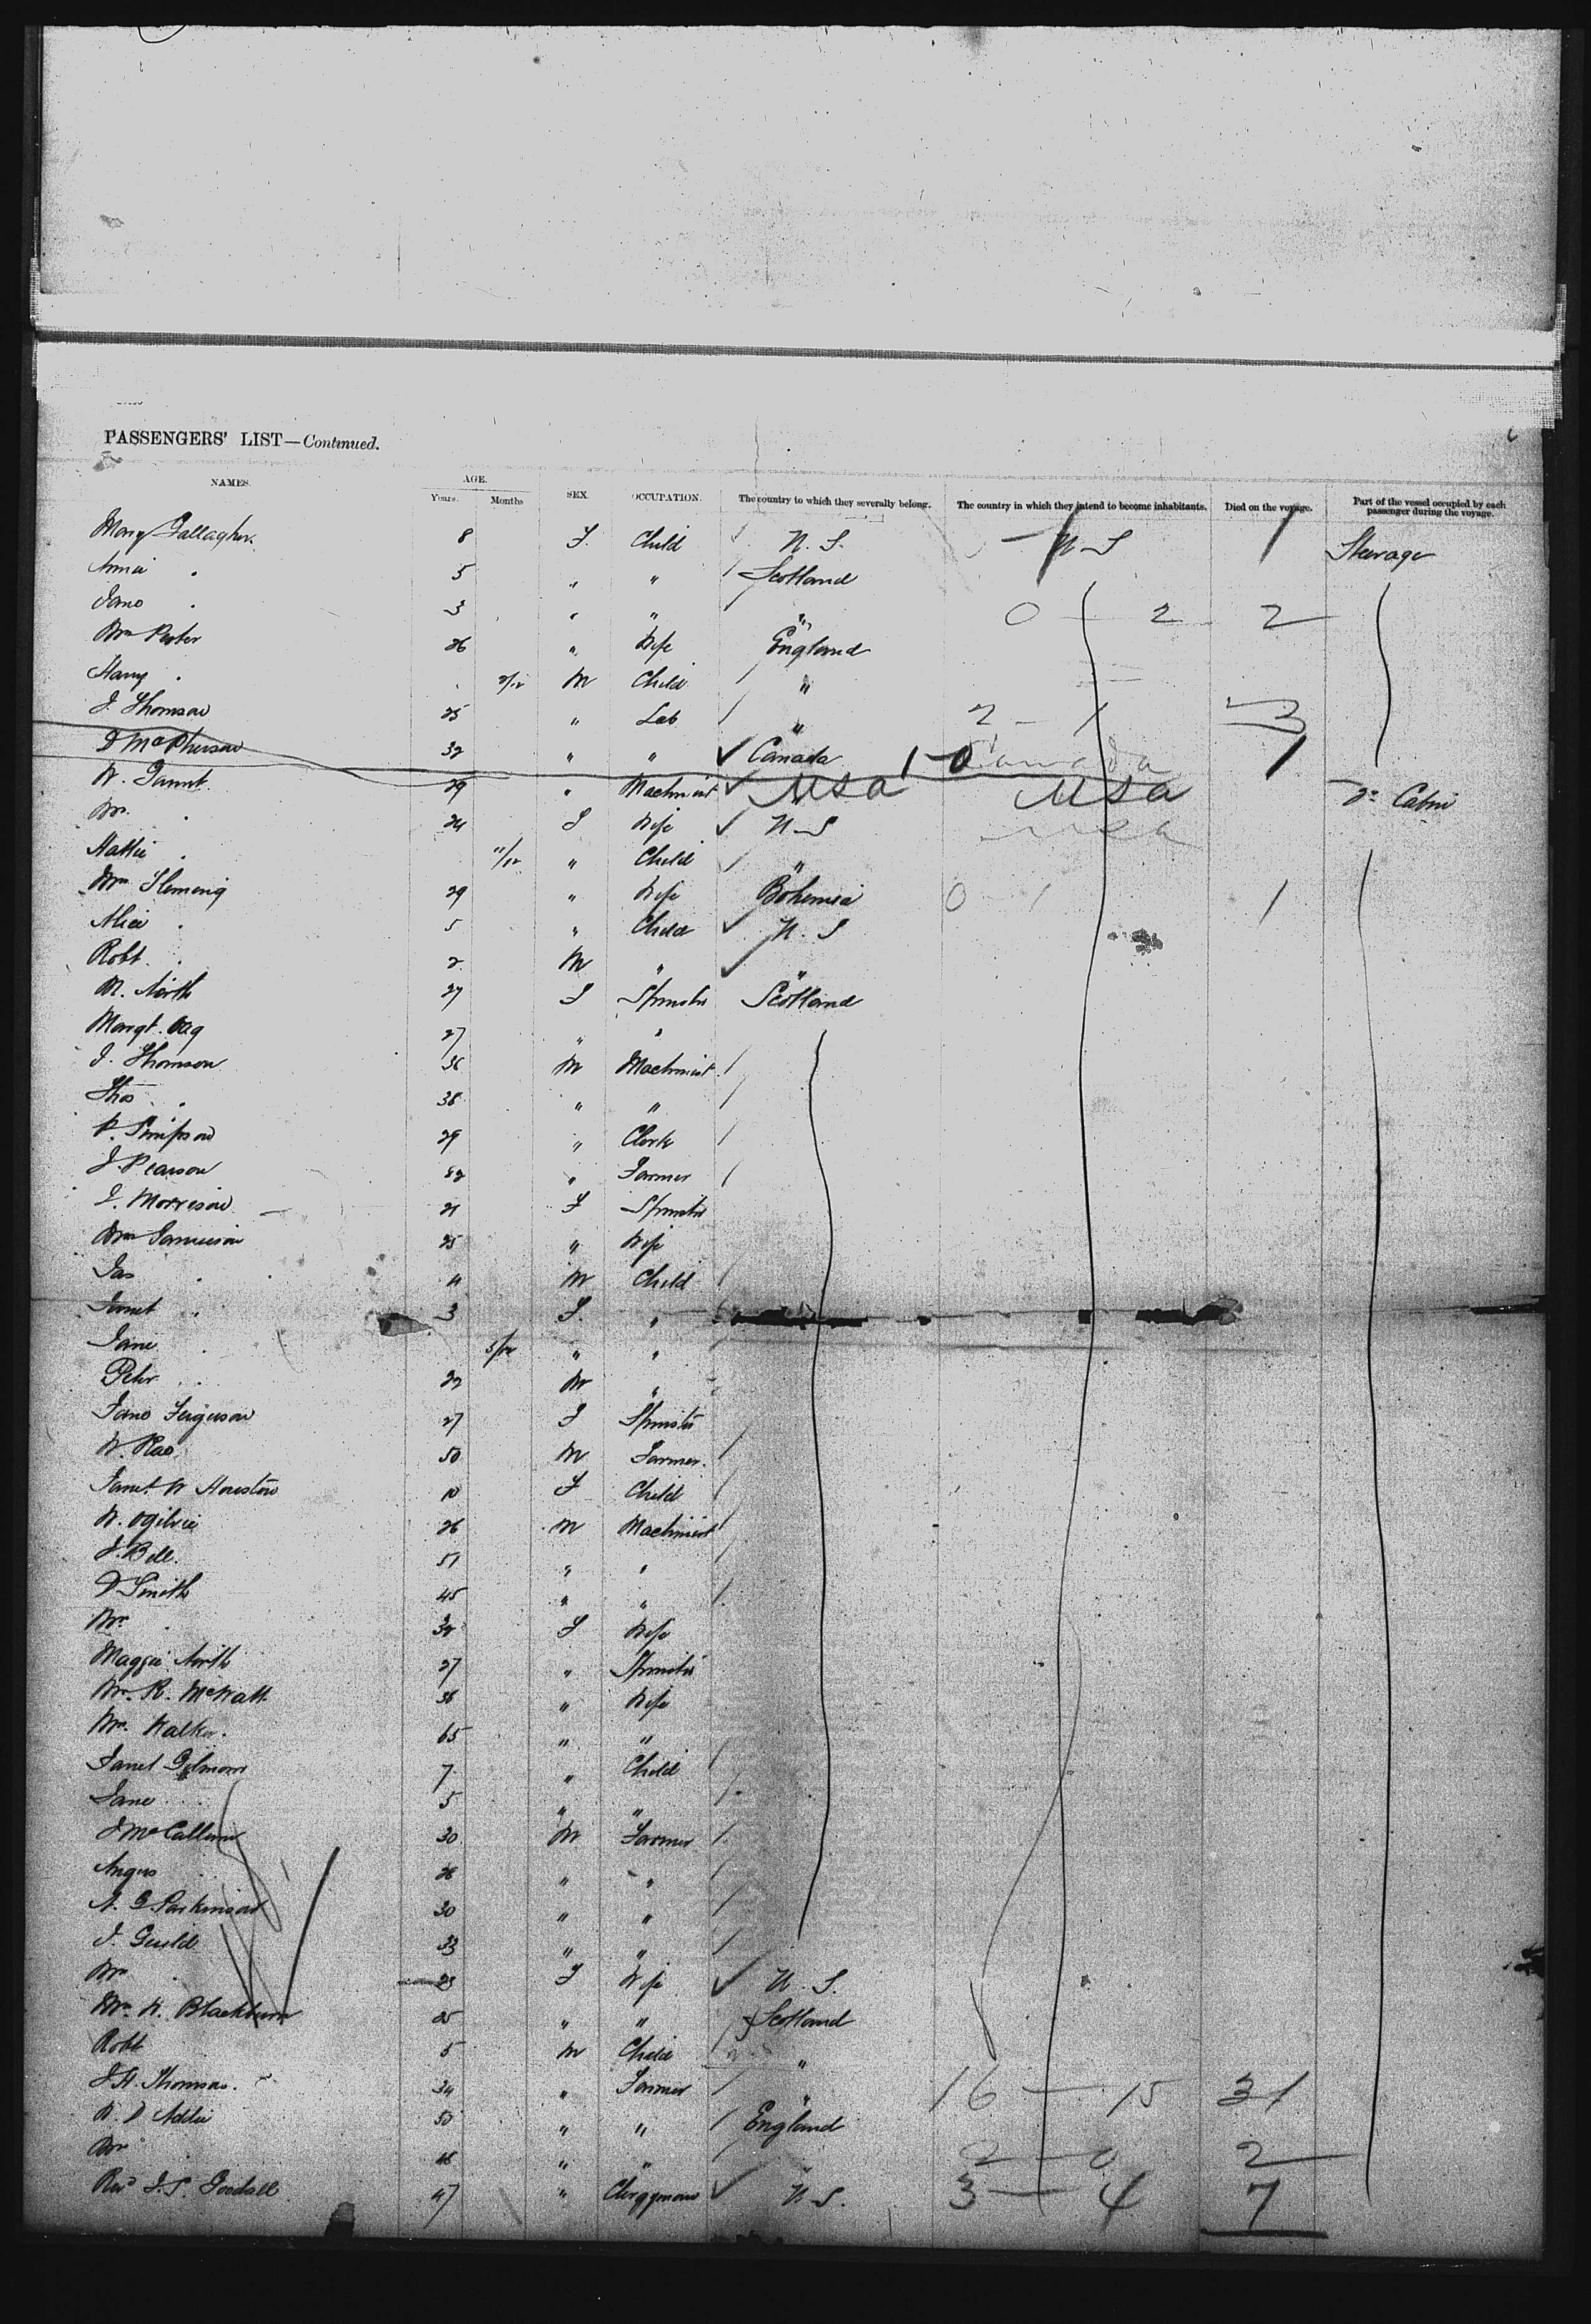 PASSENGERS' LIST—Continued.
NAMES. AGE. Years. Months SEX OCCUPATION. The country to which they severally belong. The country in which they intend to become inhabitants. Died on the voyage. Part of the vessel occupied by each passenger during the voyage.
Mary Gallagher 8 F. Child U.S. U-S 1 Steerage
Annie . 5 " " / Scotland
Jane . 3 " " " 0 2 2
Mrs 26 " Wife England
Harry . M Child "
J. Thomson 25 " Lab / " 2 - 1 3
D McPherson 32 " " ✓ Canada 1-0 Canada 1
W. 29 " Machinist ✓ USA USA 2nd Cabin
Mrs . 24 F Wife ✓ U-S
Hattie . 11/12 " Child / "
Mrs Fleming 29 " Wife Bohemia 0 - 1 1
Alice . 5 " Child ✓ U.S
Robt . 2 M " ✓ "
M. North 27 F Spinster Scotland
Margt. 27 " "
J. Thomson 36 M Machinist /
Thos . 38 " " /
P. Simpson 29 " Clerk /
J. Pearson " Farmer /
J. Morrison 21 F Spinster
Mrs Jamieson 25 " Wife
Jas . 4 M Child /
Janet . 3 F. "
Jane . 5/12 " "
Peter . M "
Jane Ferguson 27 F Spinster
W. Rae 50 M Farmer. /
Janet W Houston 10 F Child /
W. Ogilvie 26 M Machinist /
J. Bell. 51 " " /
D Smith 45 " " /
Mrs . F Wife
Maggie North 27 " Spinster
Mrs. R. McWatt 38 " Wife
Mrs. Walker. 65 " "
Janet 7 " Child /
Jane . 5 " " /
J McCallum 30 M Farmer /
Angus . 28 " " /
A. G. Parkinson 30 " " /
J. Guild 33 " " /
Mrs . 23 F Wife ✓ U.S.
Mrs. W. Blackburn 25 " " Scotland
Robt 5 M Child "
J.H. Thomson. 34 " Farmer / " 16 — 15 31
W. D Addie 50 " " / England
Mrs . 48 " " " 2 — 0 2
Revd J.S. Goodall 47 " Clergyman ✓ U-S. 3 — 4 7